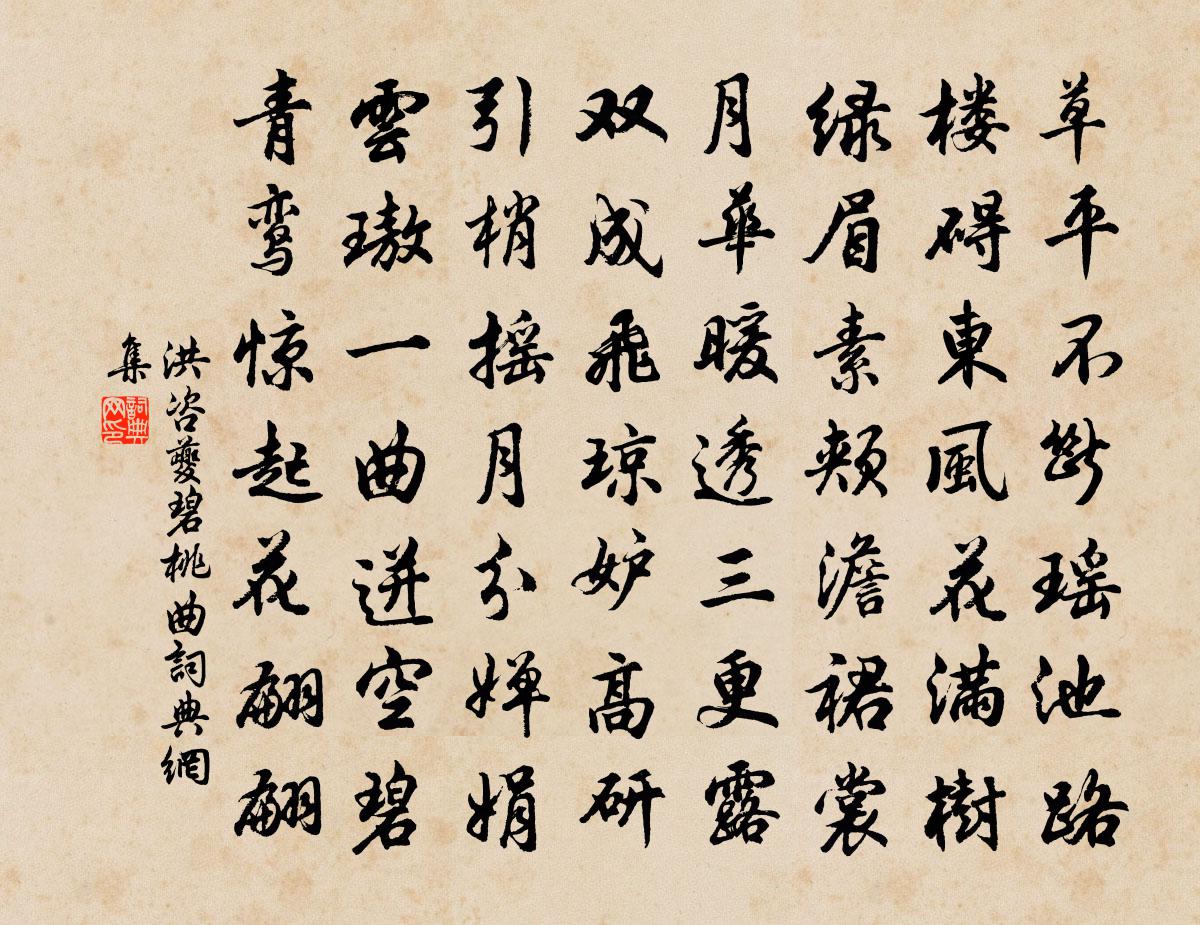 草平不断瑶池路
楼碍東風花满樹
绿眉素颊澹裙裳
月華暖透三更露
双成飛琼妒高研
引梢摇月分婵娟
雲璈一曲迸空碧
青鸾惊起花翩翩
洪咨夔碧桃曲詞典網
集
詞典网印